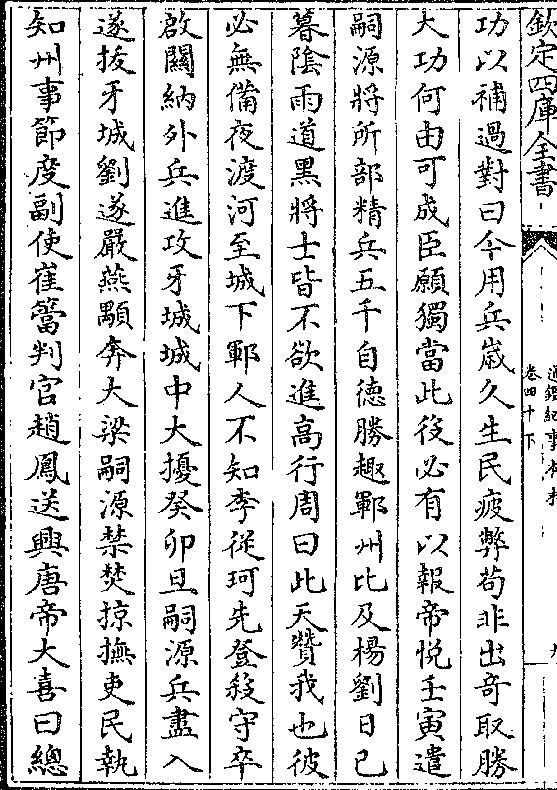 欽定四庫全書
通鑑紀事本末
卷四十下
功以補過對曰今用兵嵗久生民疲弊苟非出竒取勝
大功何由可成臣願獨當此役必有以報帝悦壬寅遣
嗣源將所部精兵五千自徳勝趣鄆州比及楊劉日已
暮陰雨道黒將士皆不欲進髙行周曰此天贊我也彼
必無備夜渡河至城下鄆人不知李從珂先登殺守卒
啟關納外兵進攻牙城城中大擾癸卯旦嗣源兵盡入
遂拔牙城劉遂嚴燕顒奔大梁嗣源禁焚掠撫吏民執
知州事節度副使崔簹判官趙鳳送興唐帝大喜曰總